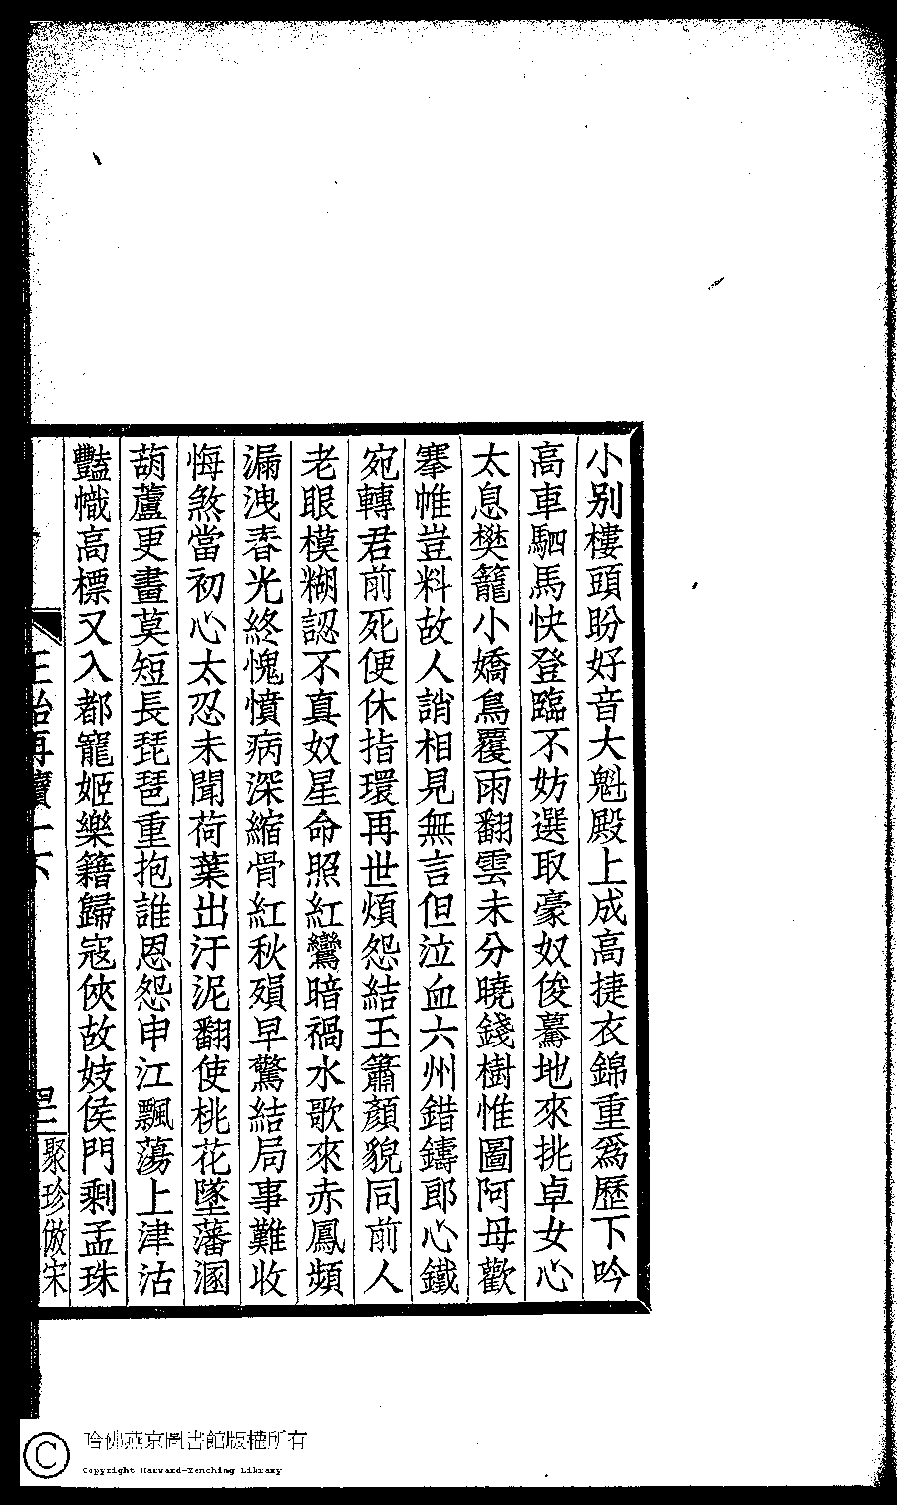 小别樓頭盼好音大魁殿上成高捷衣錦重爲歷下吟
高車駟馬快登臨不妨選取豪奴俊驀地來挑卓女心
太息樊籠小嬌鳥覆雨翻雲未分曉錢樹惟圖阿母歡
搴帷豈料故人誚相見無言但泣血六州錯鑄郎心鐵
宛轉君前死便休指環再世煩怨結玉簫顏貌同前人
老眼模糊認不真奴星命照紅鸞暗禍水歌來赤鳳頻
漏洩春光終愧憤病深縮骨紅秋殞早驚結局事難收
悔煞當初心太忍未聞荷葉出汙泥翻使桃花墜藩溷
葫蘆更畫莫短長琵琶重抱誰恩怨申江飄蕩上津沽
豔幟高標又入都寵姬樂籍歸寇俠故妓侯門剩孟珠
聚珍倣宋
哈佛燕京圖書館版權所有
Copyright Harvard-Yenching Library